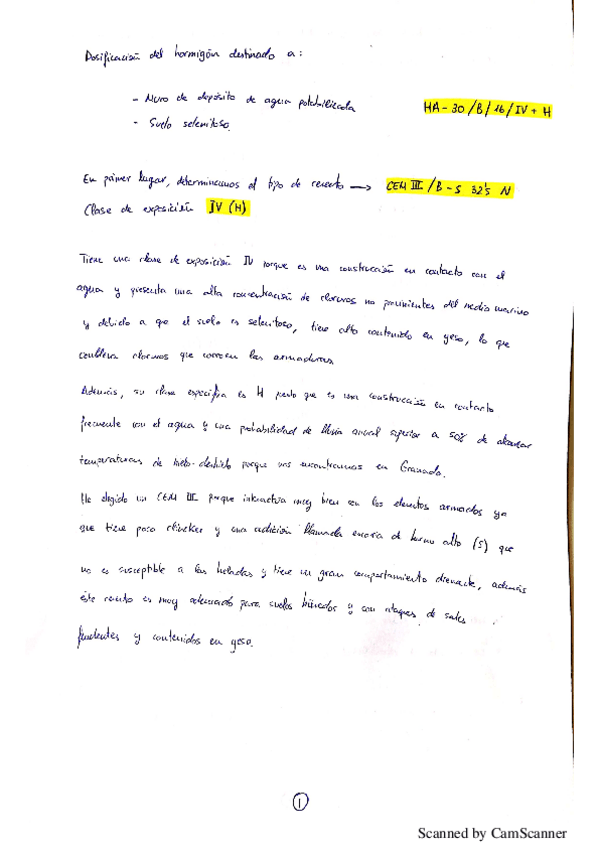 Dosificación del hormigón destinado a:
- Muro de depósito de agua potabilizada
HA-30/B/16/IV+H
- Suelo selenitoso.
En primer lugar, determinamos el tipo de cemento → CEM III/B-S 32'5 N
Clase de exposición IV (H)
Tiene una clase de exposición IV porque es una construcción en contacto con el
agua y presenta una alta concentración de cloruros no provinientes del medio marino
y debido a que el suelo es selenitoso, tiene alto contenido en yeso, lo que
conlleva cloruros que corroen las armaduras.
Además, su clase específica es H puesto que es una construcción en contacto
frecuente con el agua y una probabilidad de lluvia anual superior a 50% de alcanzar
temperaturas de hielo-deshielo porque nos encontramos en Granada.
He elegido un CEM III porque interactua muy bien con los elementos armados ya
que tiene poco clinker y una adición llamada escoria de horno alto (S) que
no es susceptible a las heladas y tiene un gran comportamiento drenante, además
éste cemento es muy adecuado para suelos húmedos y con ataques de sales
fundentes y contenidos en yeso.
1
Scanned by CamScanner